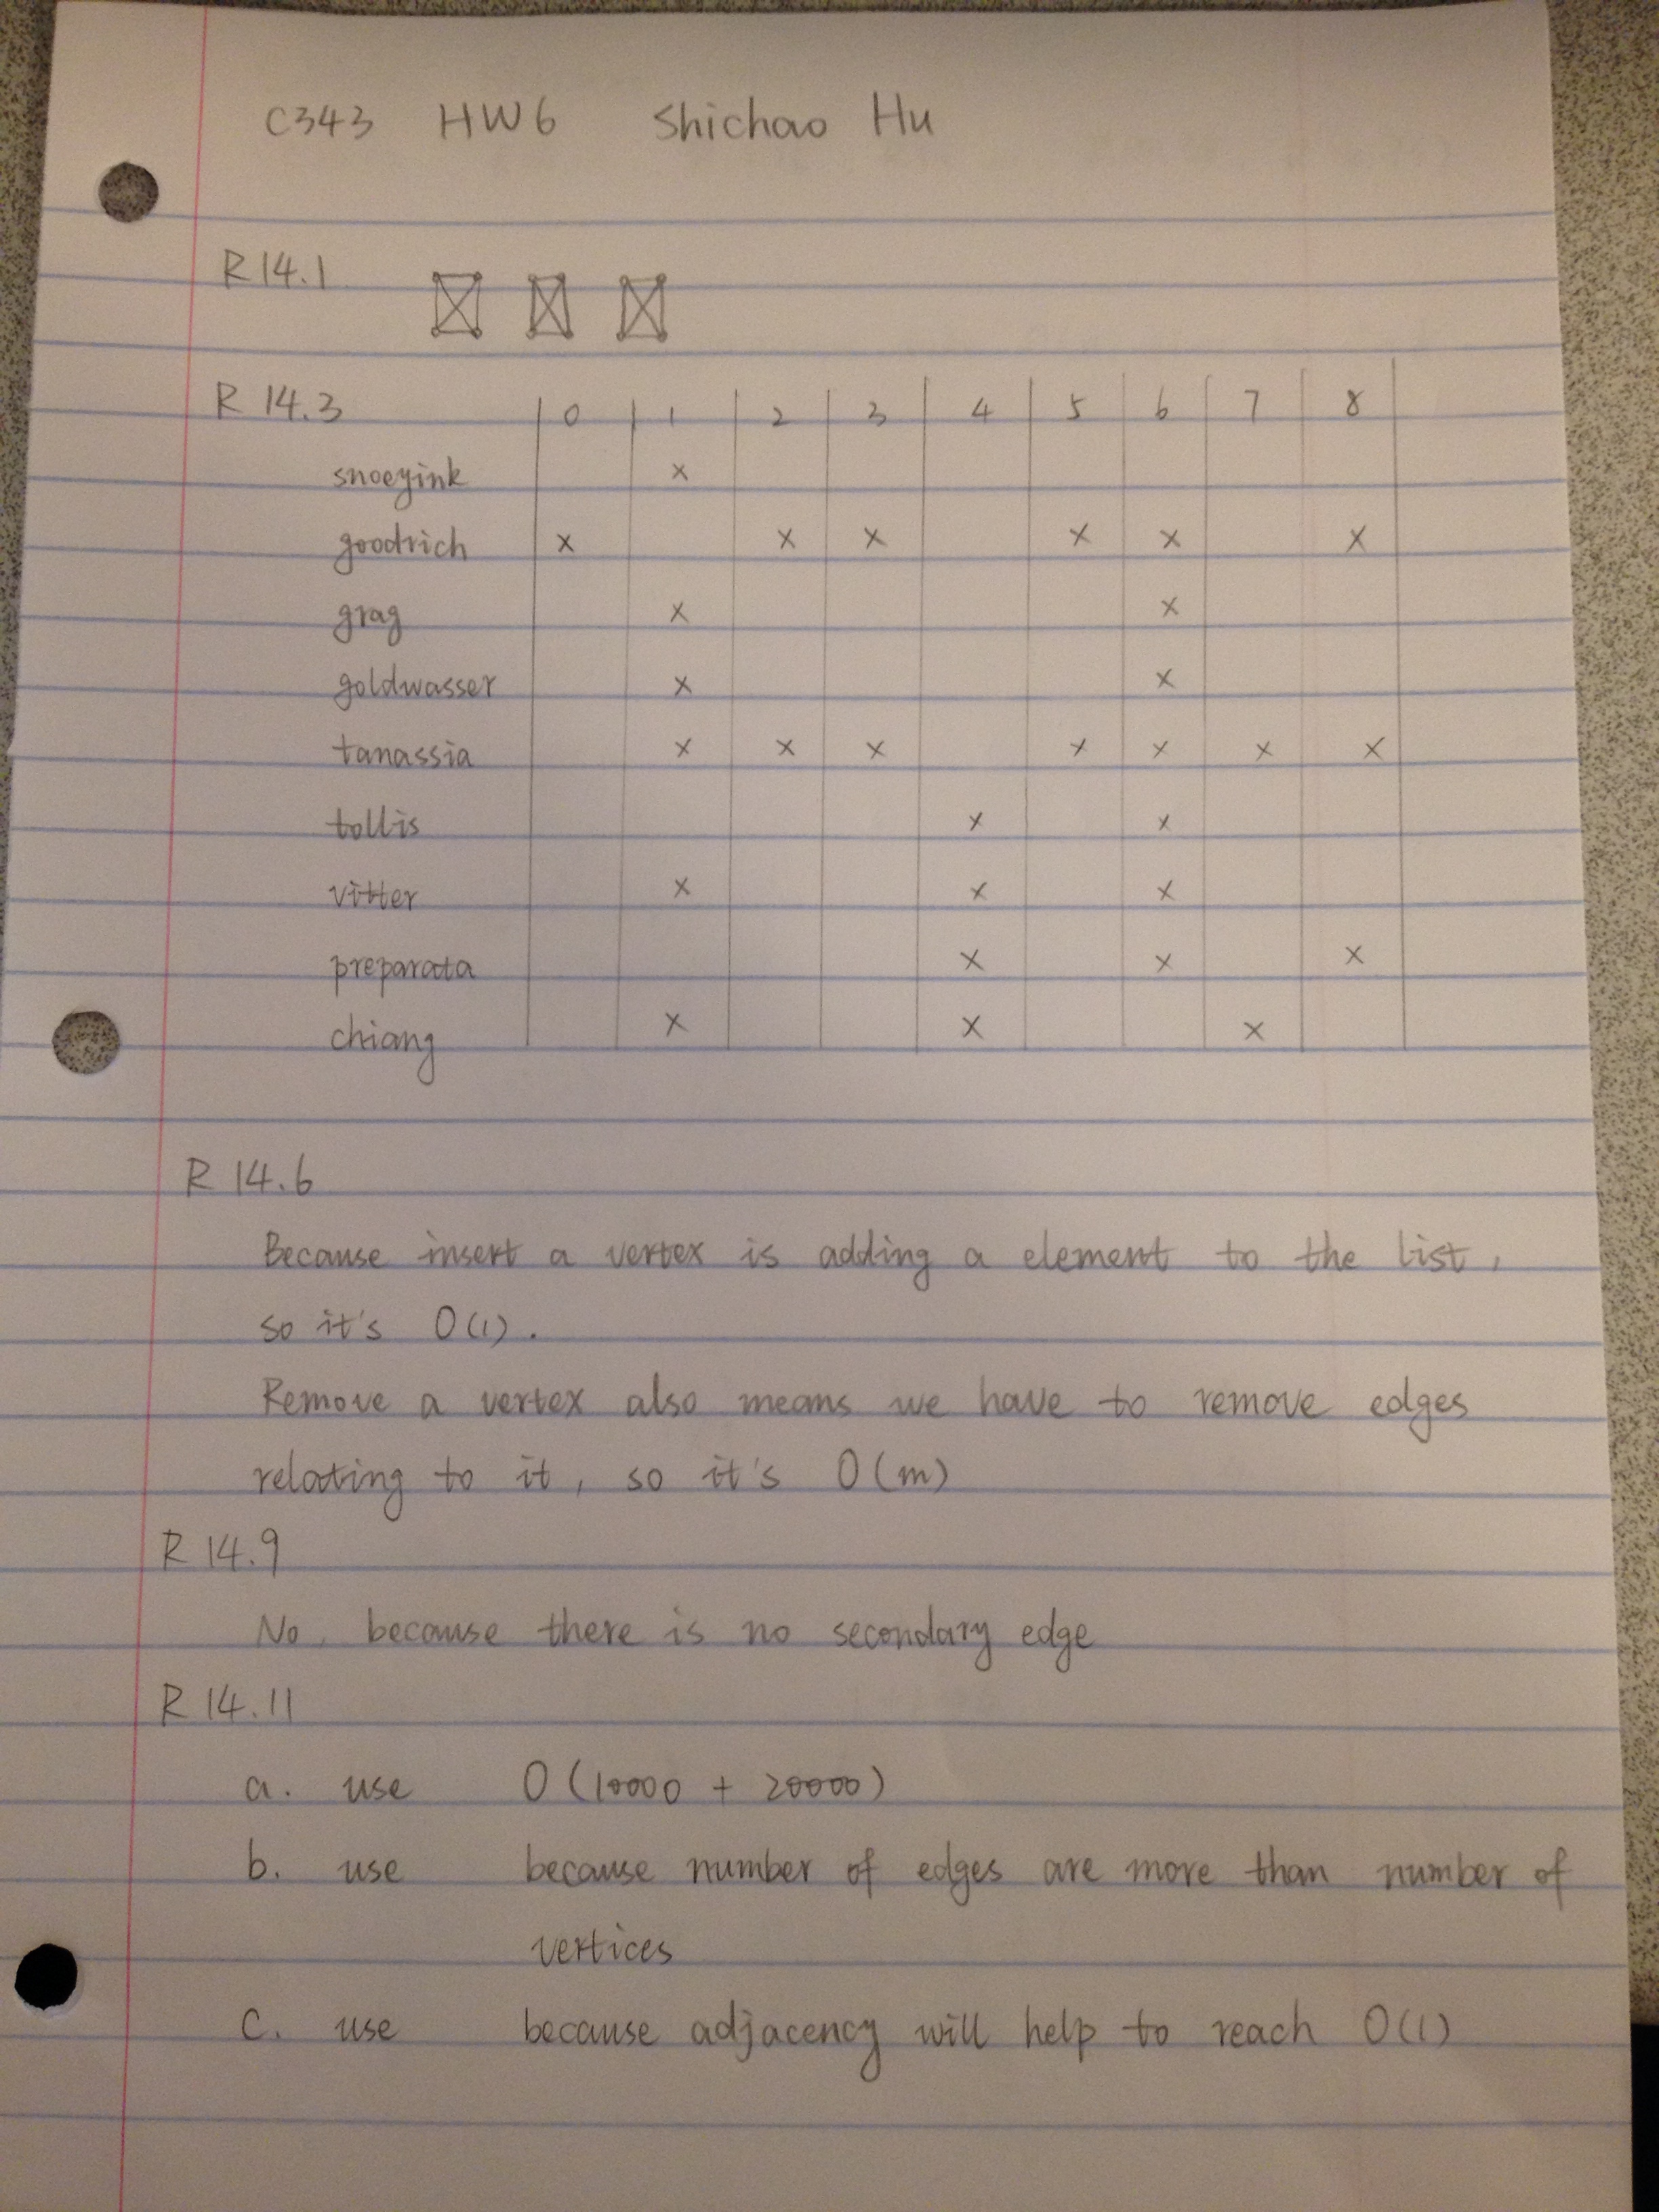 C343 HW6 Shichao Hu
R14.1
R 14.3 0 1 2 3 4 5 6 7 8
snoeyink x
goodrich x x x x x x
grag x x
goldwasser x x
tanassia x x x x x x x
tollis x x
vitter x x x
preparata x x x
chiang x x x
R 14.6
Because insert a vertex is adding a element to the list,
so it's O(1).
Remove a vertex also means we have to remove edges
relating to it, so it's O(m)
R 14.9
No, because there is no secondary edge
R 14.11
a. use O(10000 + 20000)
b. use because number of edges are more than number of
vertices
c. use because adjacency will help to reach O(1)